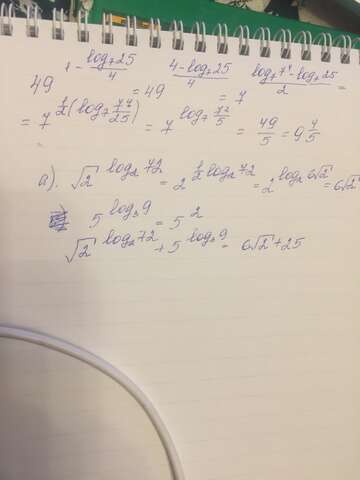 49^{1 - \frac{log_7 25}{4}} = 49^{\frac{4 - log_7 25}{4}} = 7^{\frac{log_7 7^4 - log_7 25}{2}} =
= 7^{\frac{1}{2}(log_7 \frac{7^4}{25})} = 7^{log_7 \frac{7^2}{5}} = \frac{49}{5} = 9\frac{4}{5}
а). √2^{log_2 72} = 2^{\frac{1}{2} log_2 72} = 2^{log_2 6√2} = 6√2
5^{log_3 9} = 5^2
√2^{log_2 72} + 5^{log_3 9} = 6√2 + 25